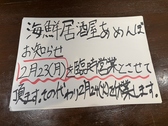 海鮮居酒屋あめんぼ
お知らせ
2月23(月)を臨時営業とさせて
頂きます。その代わり2月24(火)を休業します。